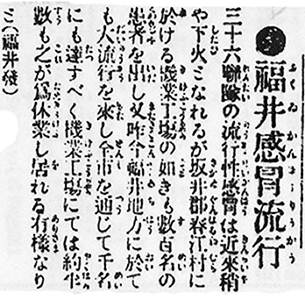 ●福井感冒流行
三十六聯隊の流行性感冒は近來稍
や下火ミなれるが坂井郡春江村に
於ける機業工場の如きも數百名の
患者を出し又昨今福井地方に於て
も大流行を來し全市を通じて千名
にも達すべく機業工場にては約半
數も之が爲休業し居れる有樣なり
ミ(福井發)